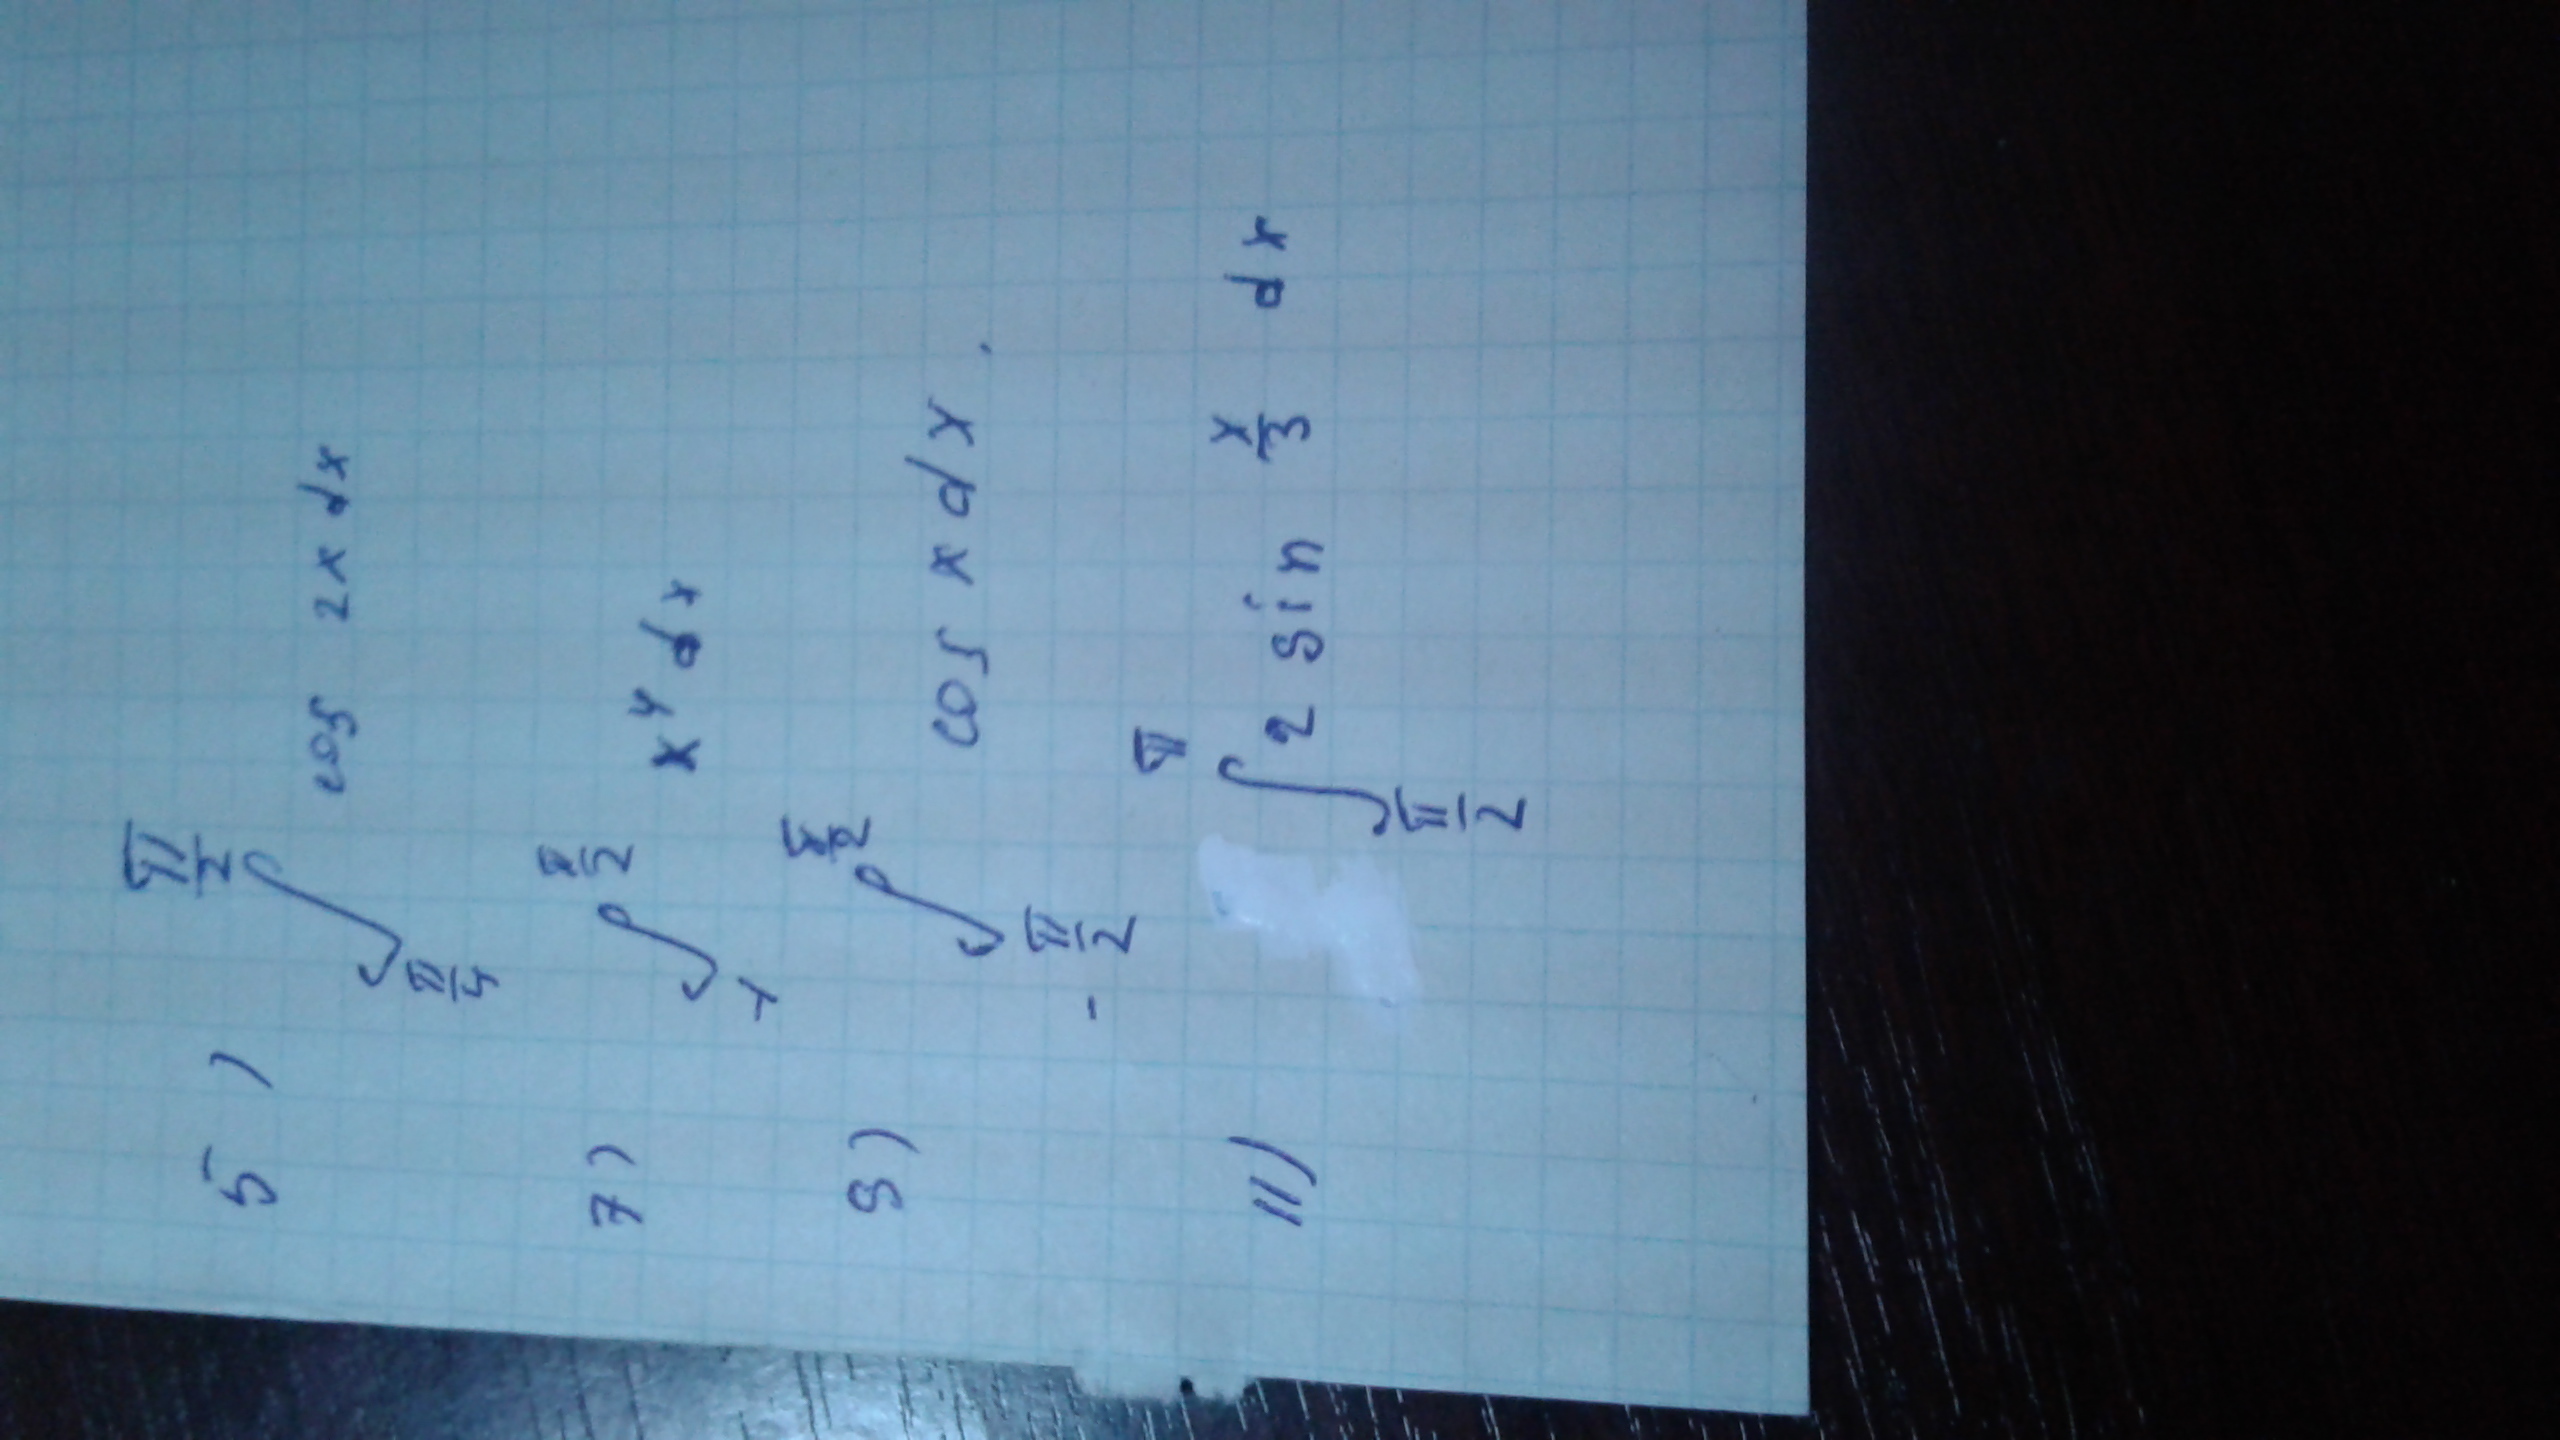 5) ∫_{π/4}^{π/2} cos 2x dx
7) ∫ x⁴ dx
9) ∫_{-π/2}^{π/2} cos x dx.
11) ∫_{π/2}^{π} 2 sin x/3 dx